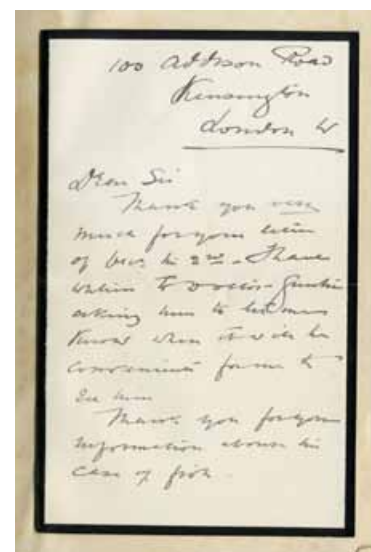 100 Addison Road
Kensington
London W
Dear Sir
Thank you very
much for your letter
of the 2nd. I have
written to Doctor
asking him to let me
know when it will be
convenient for me to
see him
Thank you for your
information about the
case of fish.